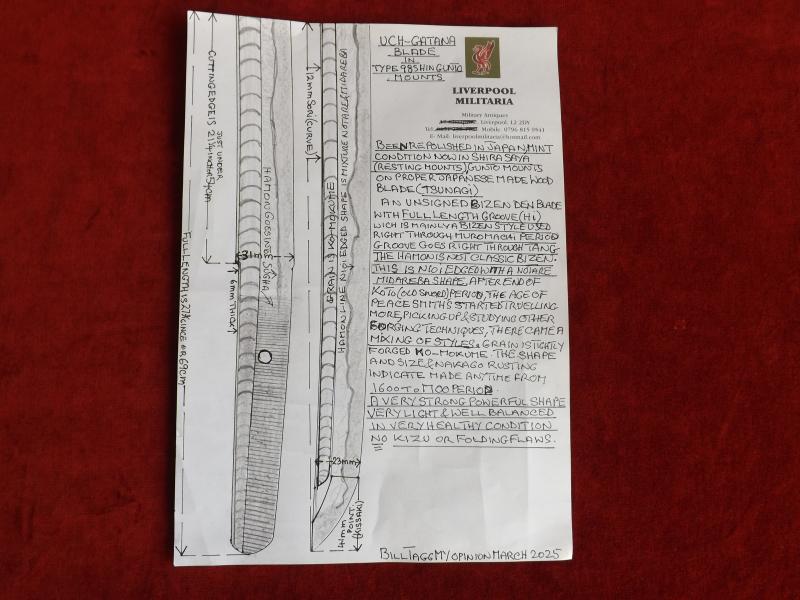 UCH-GATANA
BLADE
IN
TYPE 98 SHIN GUNTO
MOUNTS
LIVERPOOL
MILITARIA
Military Antiques
Liverpool. L2 2DY
Tel: Mobile: 0796 815 0941
E- Mail: liverpoolmilitaria@hotmail.com
BEEN REPOLISHED IN JAPAN, MINT
CONDITION NOW IN SHIRA SAYA
(RESTING MOUNTS) GUNTO MOUNTS
ON PROPER JAPANESE MADE WOOD
BLADE (TSUNAGI)
AN UNSIGNED BIZEN DEN BLADE
WITH FULL LENGTH GROOVE (HI)
WICH IS MAINLY A BIZEN STYLE USED
RIGHT THROUGH MUROMACHI PERIOD
GROOVE GOES RIGHT THROUGH TANG.
THE HAMON IS NOT CLASSIC BIZEN.
THIS IS NIOI EDGED WITH A NOTARE
MIDAREBA SHAPE, AFTER END OF
KOTO (OLD SWORD) PERIOD, THE AGE OF
PEACE SMITHS STARTED TRUELLING
MORE, PICKING UP & STUDYING OTHER
FORGING TECHNIQUES, THERE CAME A
MIXING OF STYLES. GRAIN IS TIGHTLY
FORGED KO-MOKUME. THE SHAPE
AND SIZE & NAKAGO RUSTING
INDICATE MADE ANYTIME FROM
1600 TO 1700 PERIOD.
A VERY STRONG POWERFUL SHAPE
VERY LIGHT & WELL BALANCED
IN VERY HEALTHY CONDITION
NO KIZU OR FOLDING FLAWS.
BILL TAGG MY OPINION MARCH 2025
FULL LENGTH IS 27
OR 69cm
CUTTING EDGE IS
JUST UNDER
21 1/4 INCH OR 54cm
31m
6mm THICK
HAMON GOES INTO SUGHA
12mm SORI (CURVE)
GRAIN IS KO-MOKUME
HAMON LINE NIOI EDGED SHAPE IS MIXTURE NOTARE/MIDAREBA
23mm
41mm
POINT
(KISSAKI)